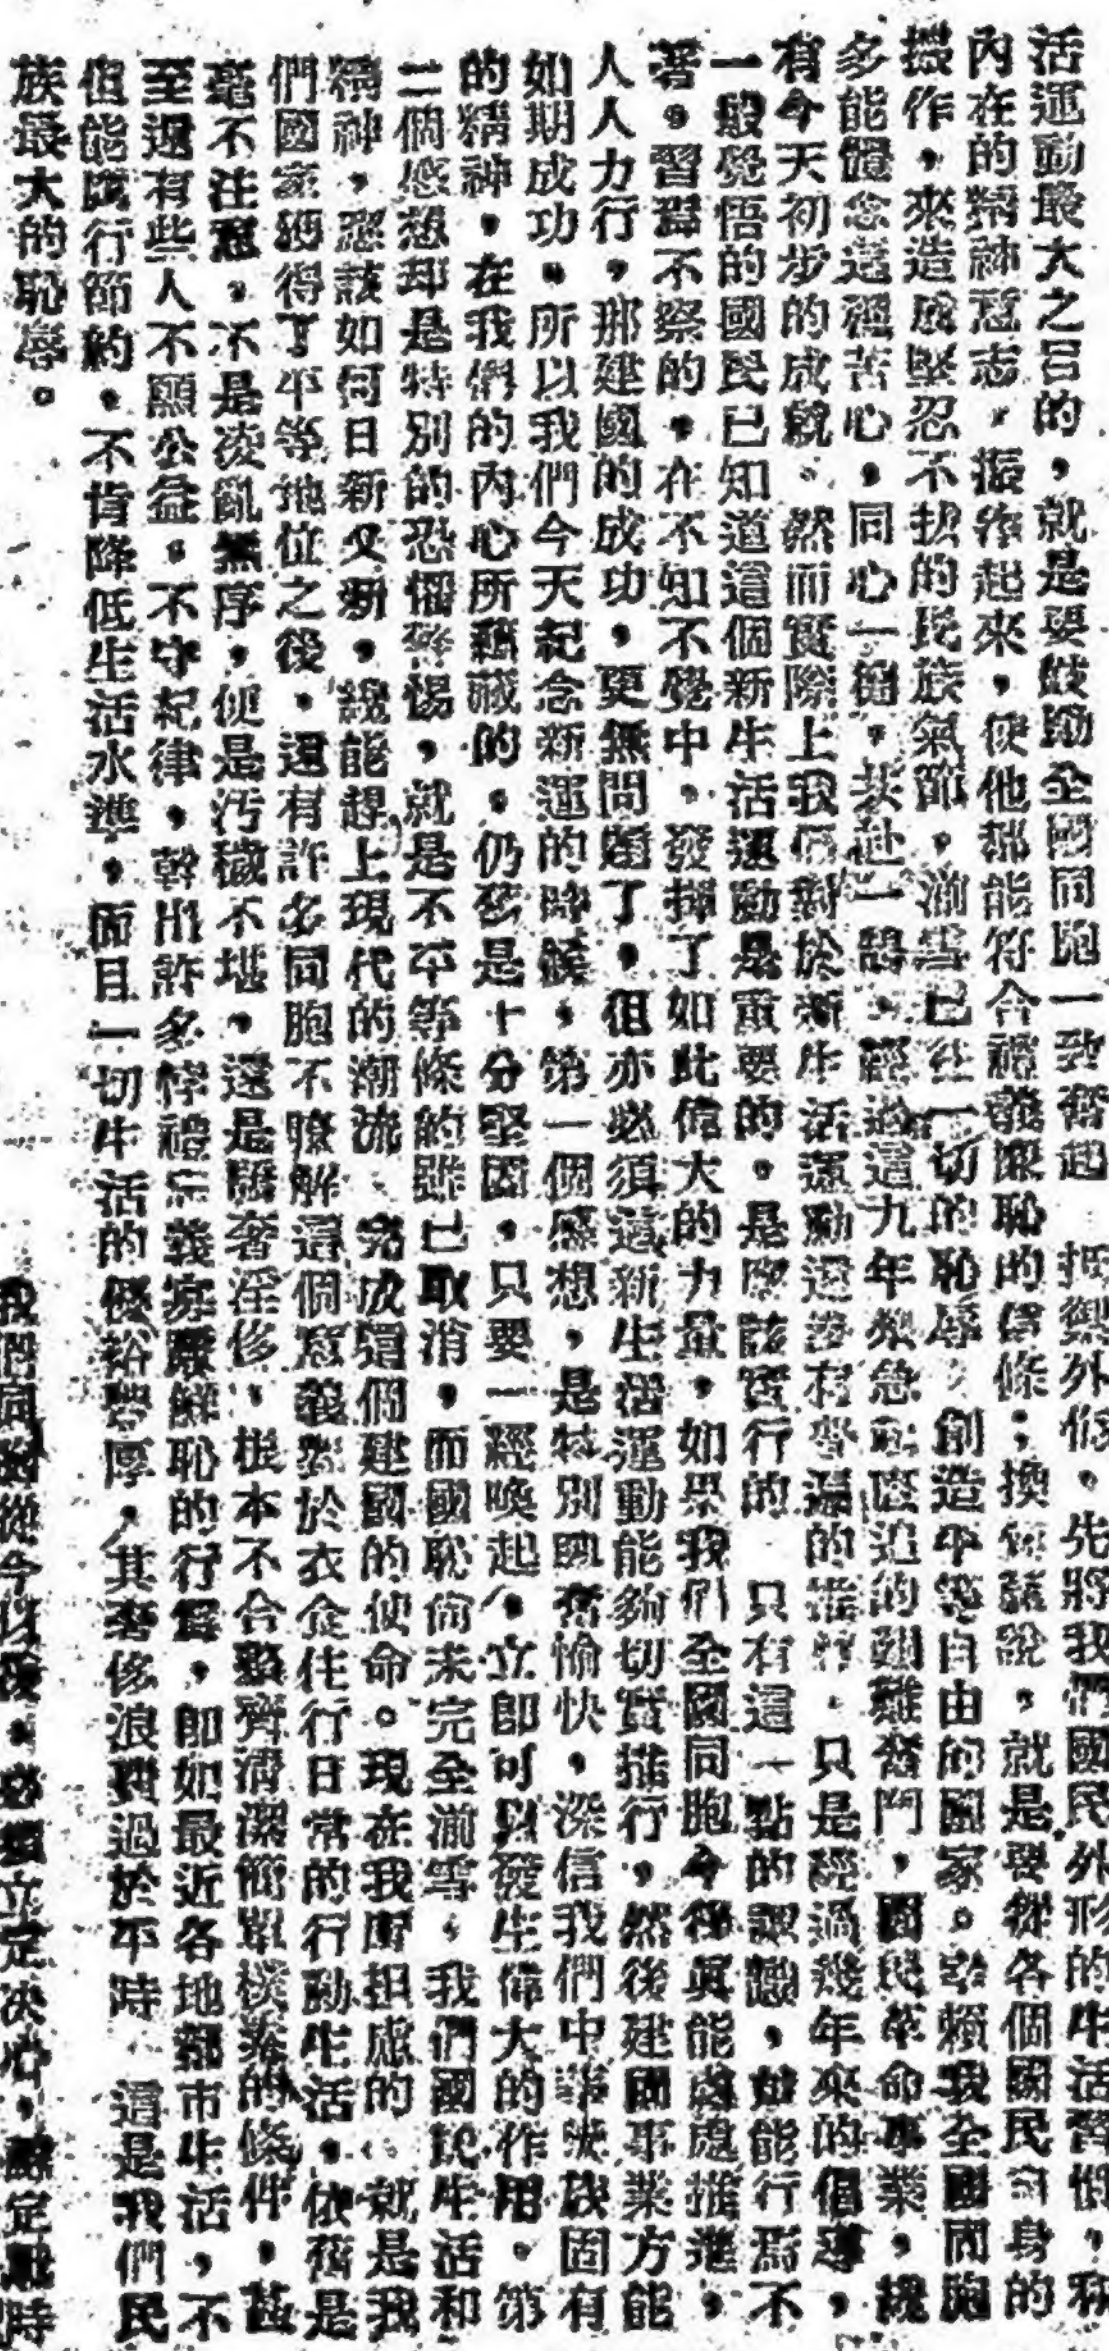 活運動最大之目的，就是要鼓勵全國同胞一致奮起　抵禦外侮。先將我們國民外形的生活習慣，和
內在的精神意志，振作起來，使他都能符合禮義廉恥的信條；換句話說，就是要從各個國民自身的
振作，來造成堅忍不拔的民族氣節，湔雪已往一切的恥辱　創造平等自由的國家。幸賴我全國同胞
多能體念這種苦心，同心一德，共赴一鵠，經過這九年艱急窘迫的艱難奮鬥，國民革命事業，纔
有今天初步的成就。然而實際上我們對於新生活運動還沒有普遍的推行，只是經過幾年來的倡導，
一般覺悟的國民已知道這個新生活運動是重要的。是應該實行的　只有這一點的認識，始能行焉不
著。習焉不察的，在不知不覺中，發揮了如此偉大的力量，如果我們全國同胞今後真能處處推進，
人人力行，那建國的成功，更無問題了，但亦必須這新生活運動能夠切實推行，然後建國事業方能
如期成功。所以我們今天紀念新運的時候，第一個感想，是特別興奮愉快，深信我們中華民族固有
的精神，在我們的內心所蘊藏的，仍舊是十分堅固，只要一經喚起，立即可以發生偉大的作用。第
二個感想却是特別的恐懼警惕，就是不平等條約雖已取消，而國恥尚未完全湔雪，我們國民生活和
精神，應該如何日新又新，纔能趕上現代的潮流　完成這個建國的使命。現在我所担慮的，就是我
們國家獲得了平等地位之後，還有許多同胞不瞭解這個意義對於衣食住行日常的行動生活，依舊是
毫不注意，不是凌亂無序，便是汚穢不堪，還是驕奢淫侈，根本不合整齊清潔簡單樸素的條件，甚
至還有些人不顧公益，不守紀律，幹出許多悖禮忘義寡廉鮮恥的行爲，即如最近各地都市生活，不
但能厲行節約，不肯降低生活水準，而且一切生活的優裕豐厚，其奢侈浪費過於平時　這是我們民
族最大的恥辱。
我們同胞從今以後，必須立定決心，